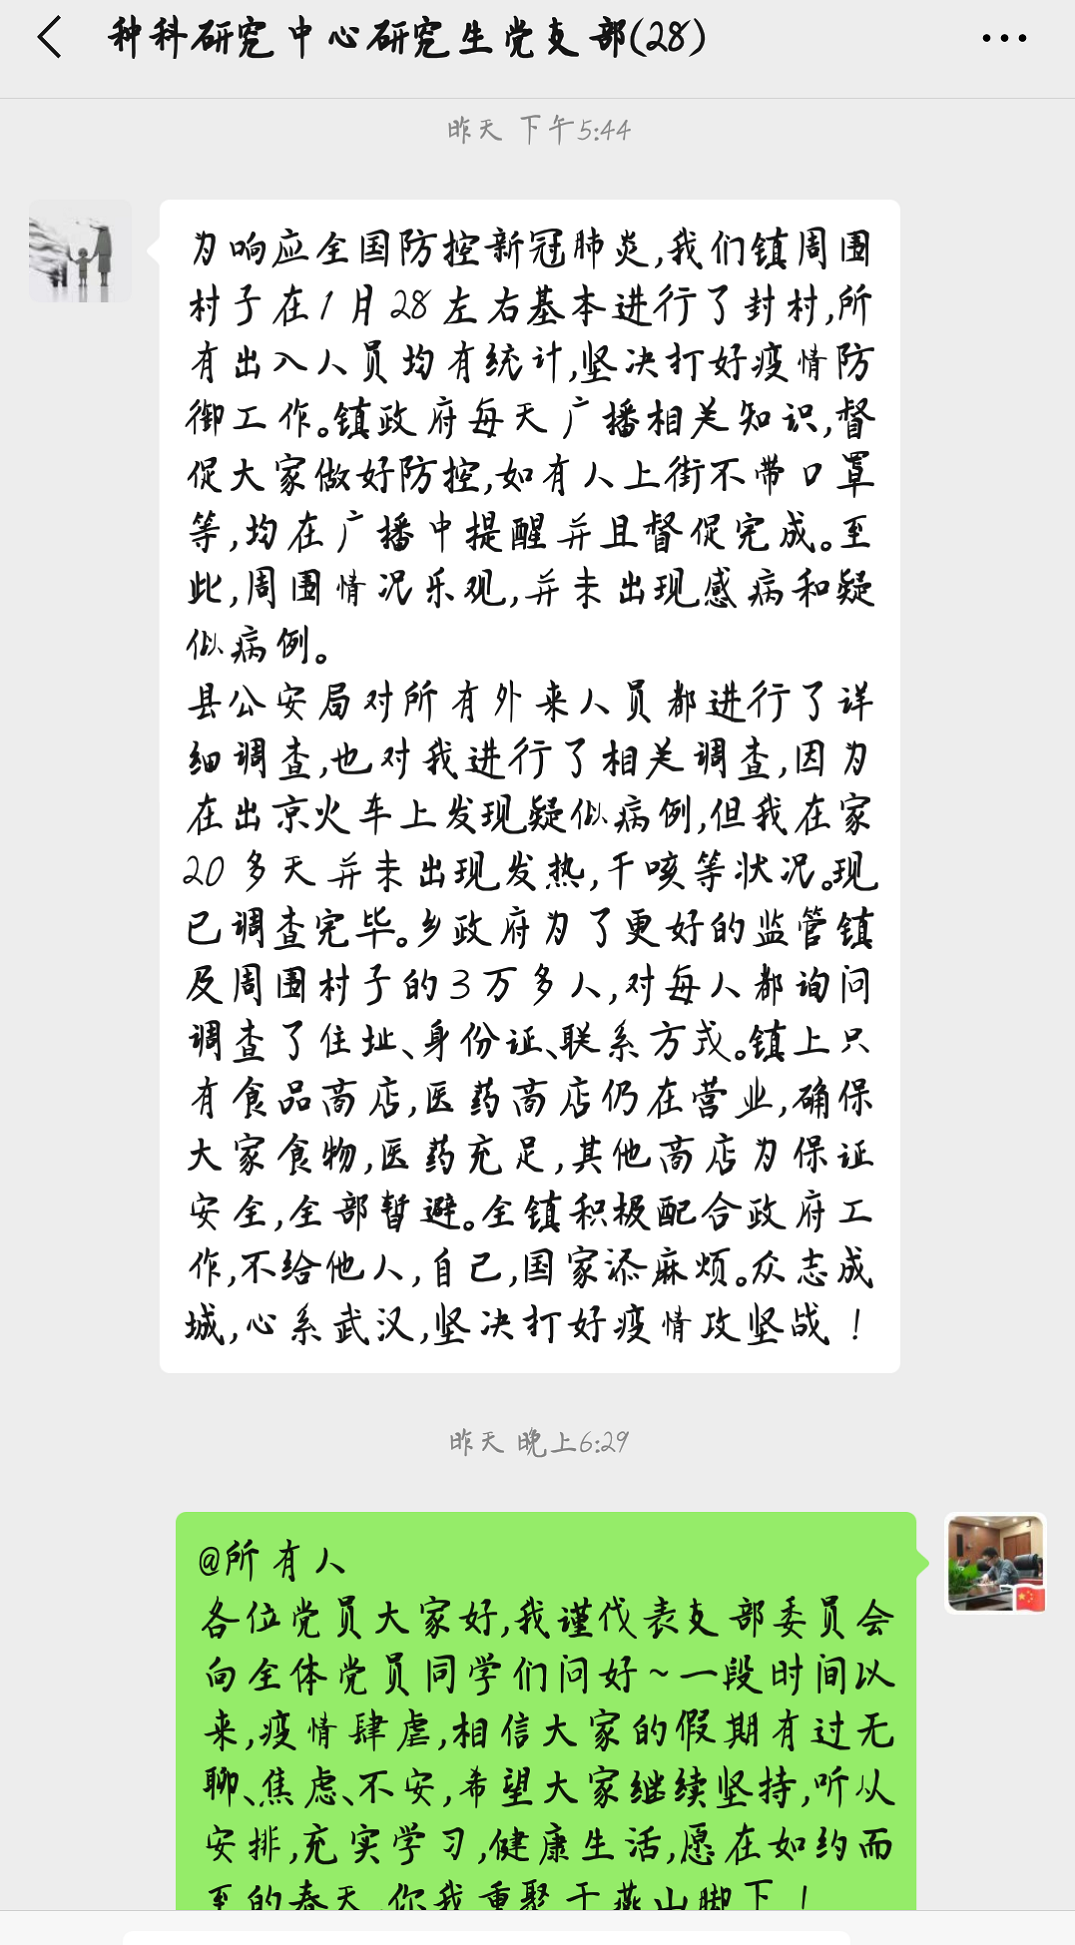 种科研究中心研究生党支部(28)
昨天 下午5:44
为响应全国防控新冠肺炎,我们镇周围
村子在1月28左右基本进行了封村,所
有出入人员均有统计,坚决打好疫情防
御工作。镇政府每天广播相关知识,督
促大家做好防控,如有人上街不带口罩
等,均在广播中提醒并且督促完成。至
此,周围情况乐观,并未出现感病和疑
似病例。
县公安局对所有外来人员都进行了详
细调查,也对我进行了相关调查,因为
在出京火车上发现疑似病例,但我在家
20多天并未出现发热,干咳等状况。现
已调查完毕。乡政府为了更好的监管镇
及周围村子的3万多人,对每人都询问
调查了住址、身份证、联系方式。镇上只
有食品商店,医药商店仍在营业,确保
大家食物,医药充足,其他商店为保证
安全,全部暂避。全镇积极配合政府工
作,不给他人,自己,国家添麻烦。众志成
城,心系武汉,坚决打好疫情攻坚战!
昨天 晚上6:29
@所有人
各位党员大家好,我谨代表支部委员会
向全体党员同学们问好~一段时间以
来,疫情肆虐,相信大家的假期有过无
聊、焦虑、不安,希望大家继续坚持,听从
安排,充实学习,健康生活,愿在如约而
至的春天,你我重聚于燕山脚下!